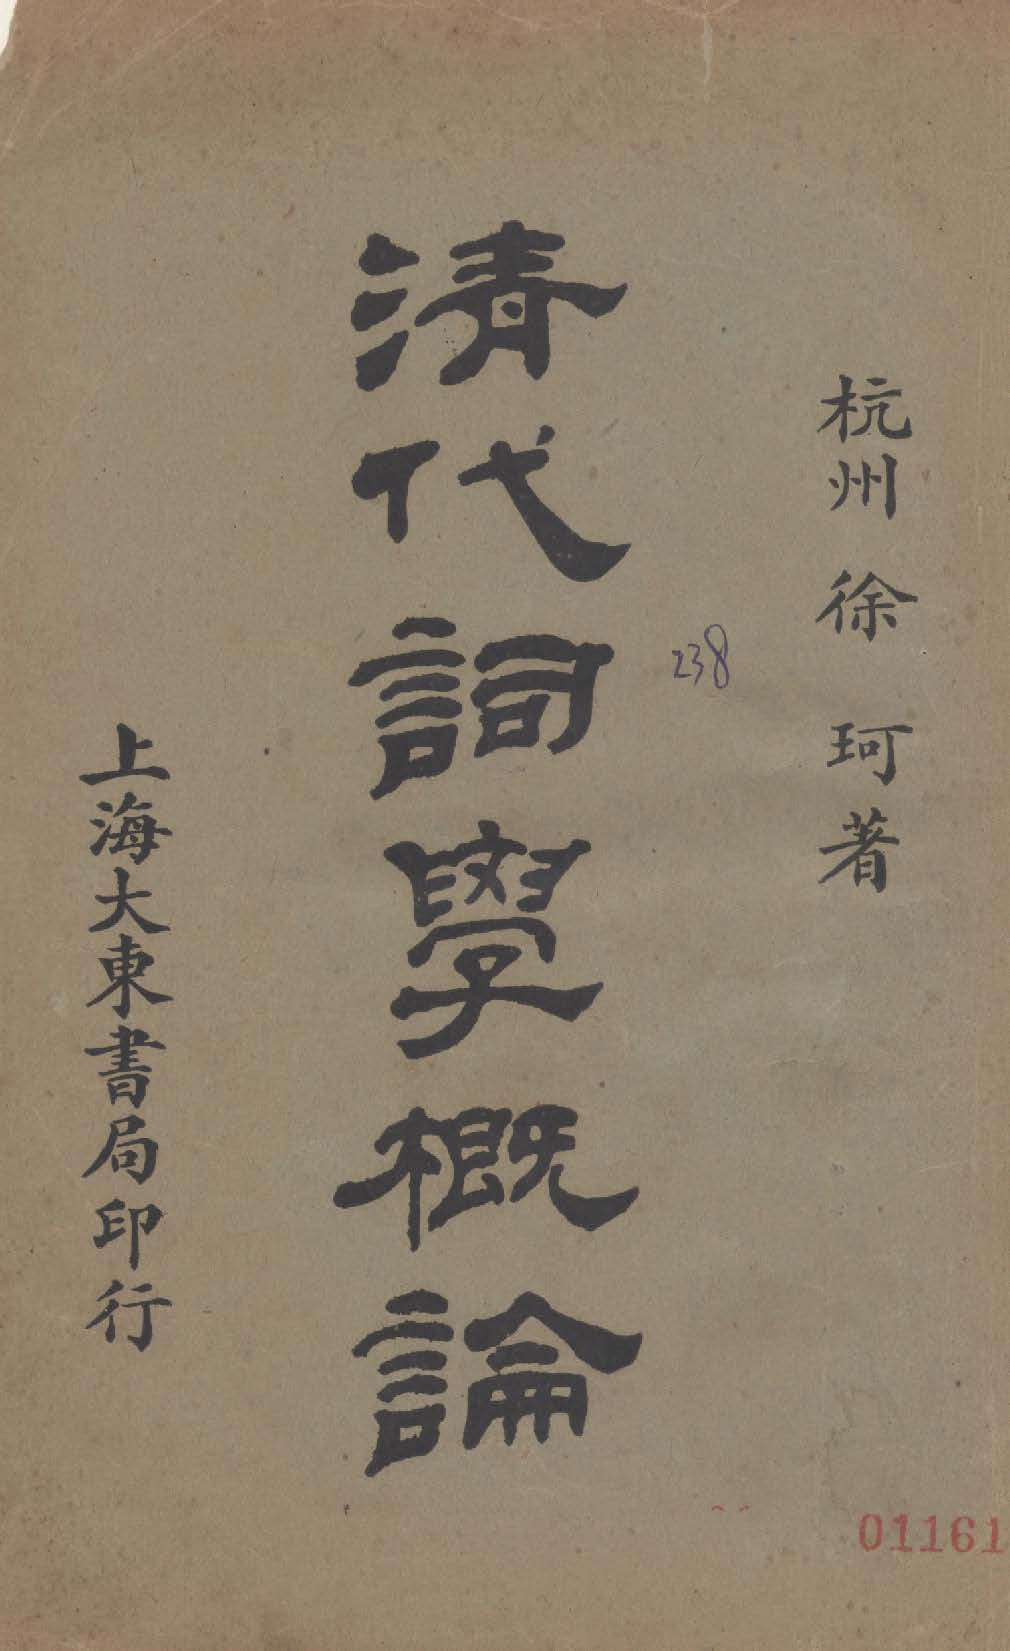 杭州徐珂著
清代詞學概論
上海大東書局印行
238
01161